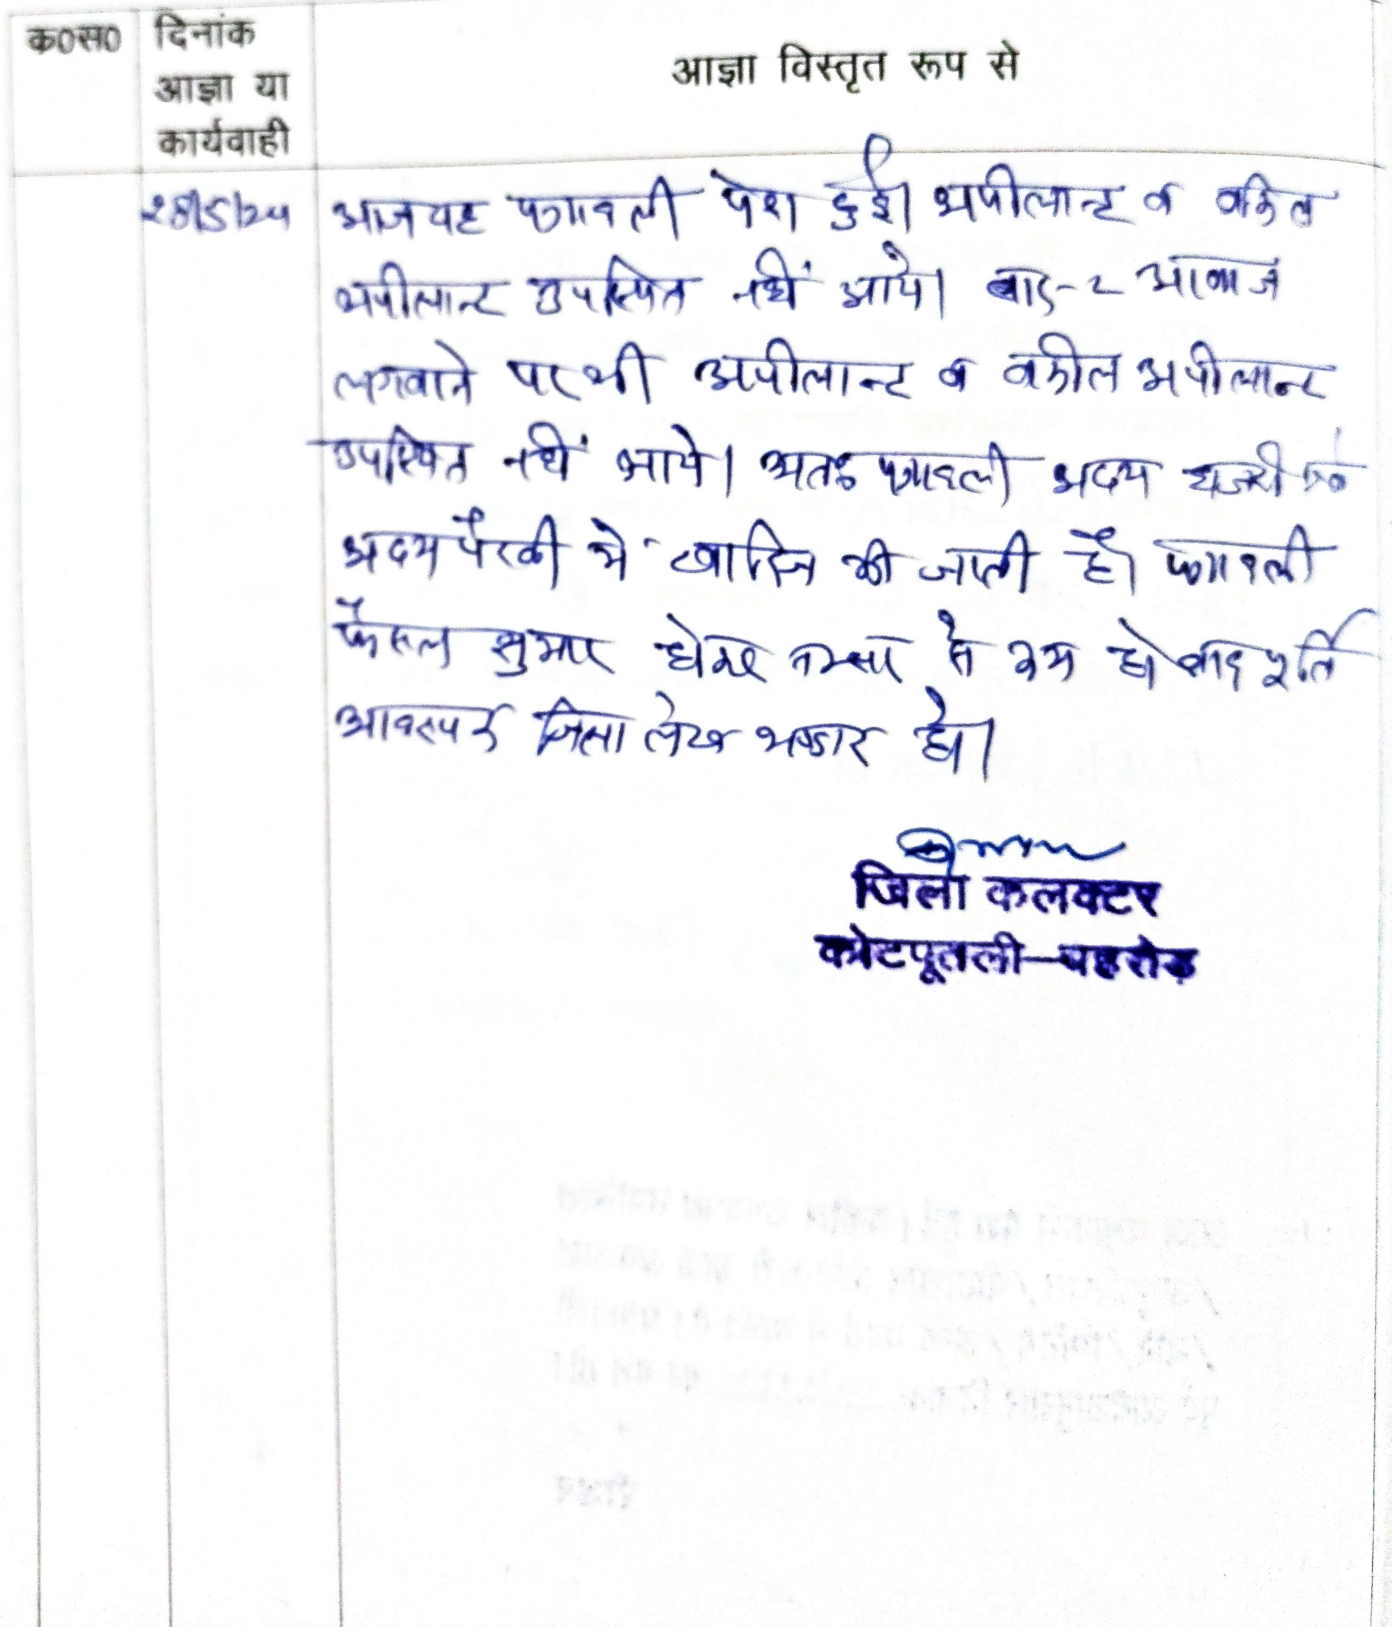 क0स0
दिनांक
आज्ञा या
कार्यवाही
आज्ञा विस्तृत रूप से
28/5/24
आज यह पत्रावली पेश हुई। अपीलान्ट व वकील
अपीलान्ट उपस्थित नहीं आये। बार-2 आवाज
लगवाने पर भी अपीलान्ट व वकील अपीलान्ट
उपस्थित नहीं आये। अतः पत्रावली अदम हाजरी
अदम पैरवी में खारिज की जाती है। पत्रावली
फैसल सुमार होकर नम्बर से कम हो बाद पूर्ति
आवश्यक जिला लेख भण्डार हो।
जिला कलक्टर
कोटपूतली-बहरोड़